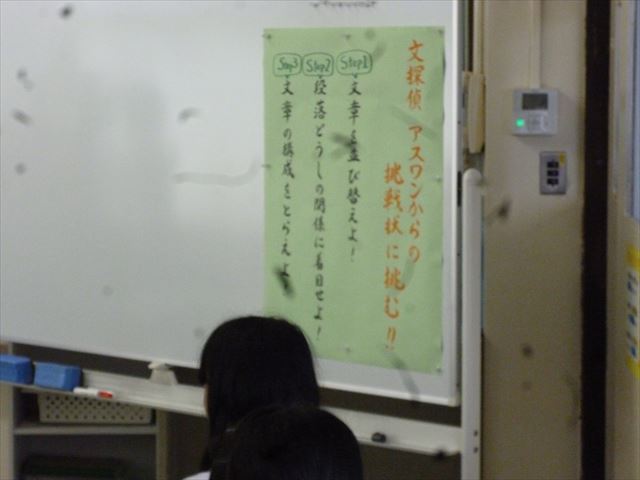 文探偵 アスワンからの
挑戦状に挑む!!
Step1 文章を並び替えよ!
Step2 段落どうしの関係に着目せよ!
Step3 文章の構成をとらえよ!